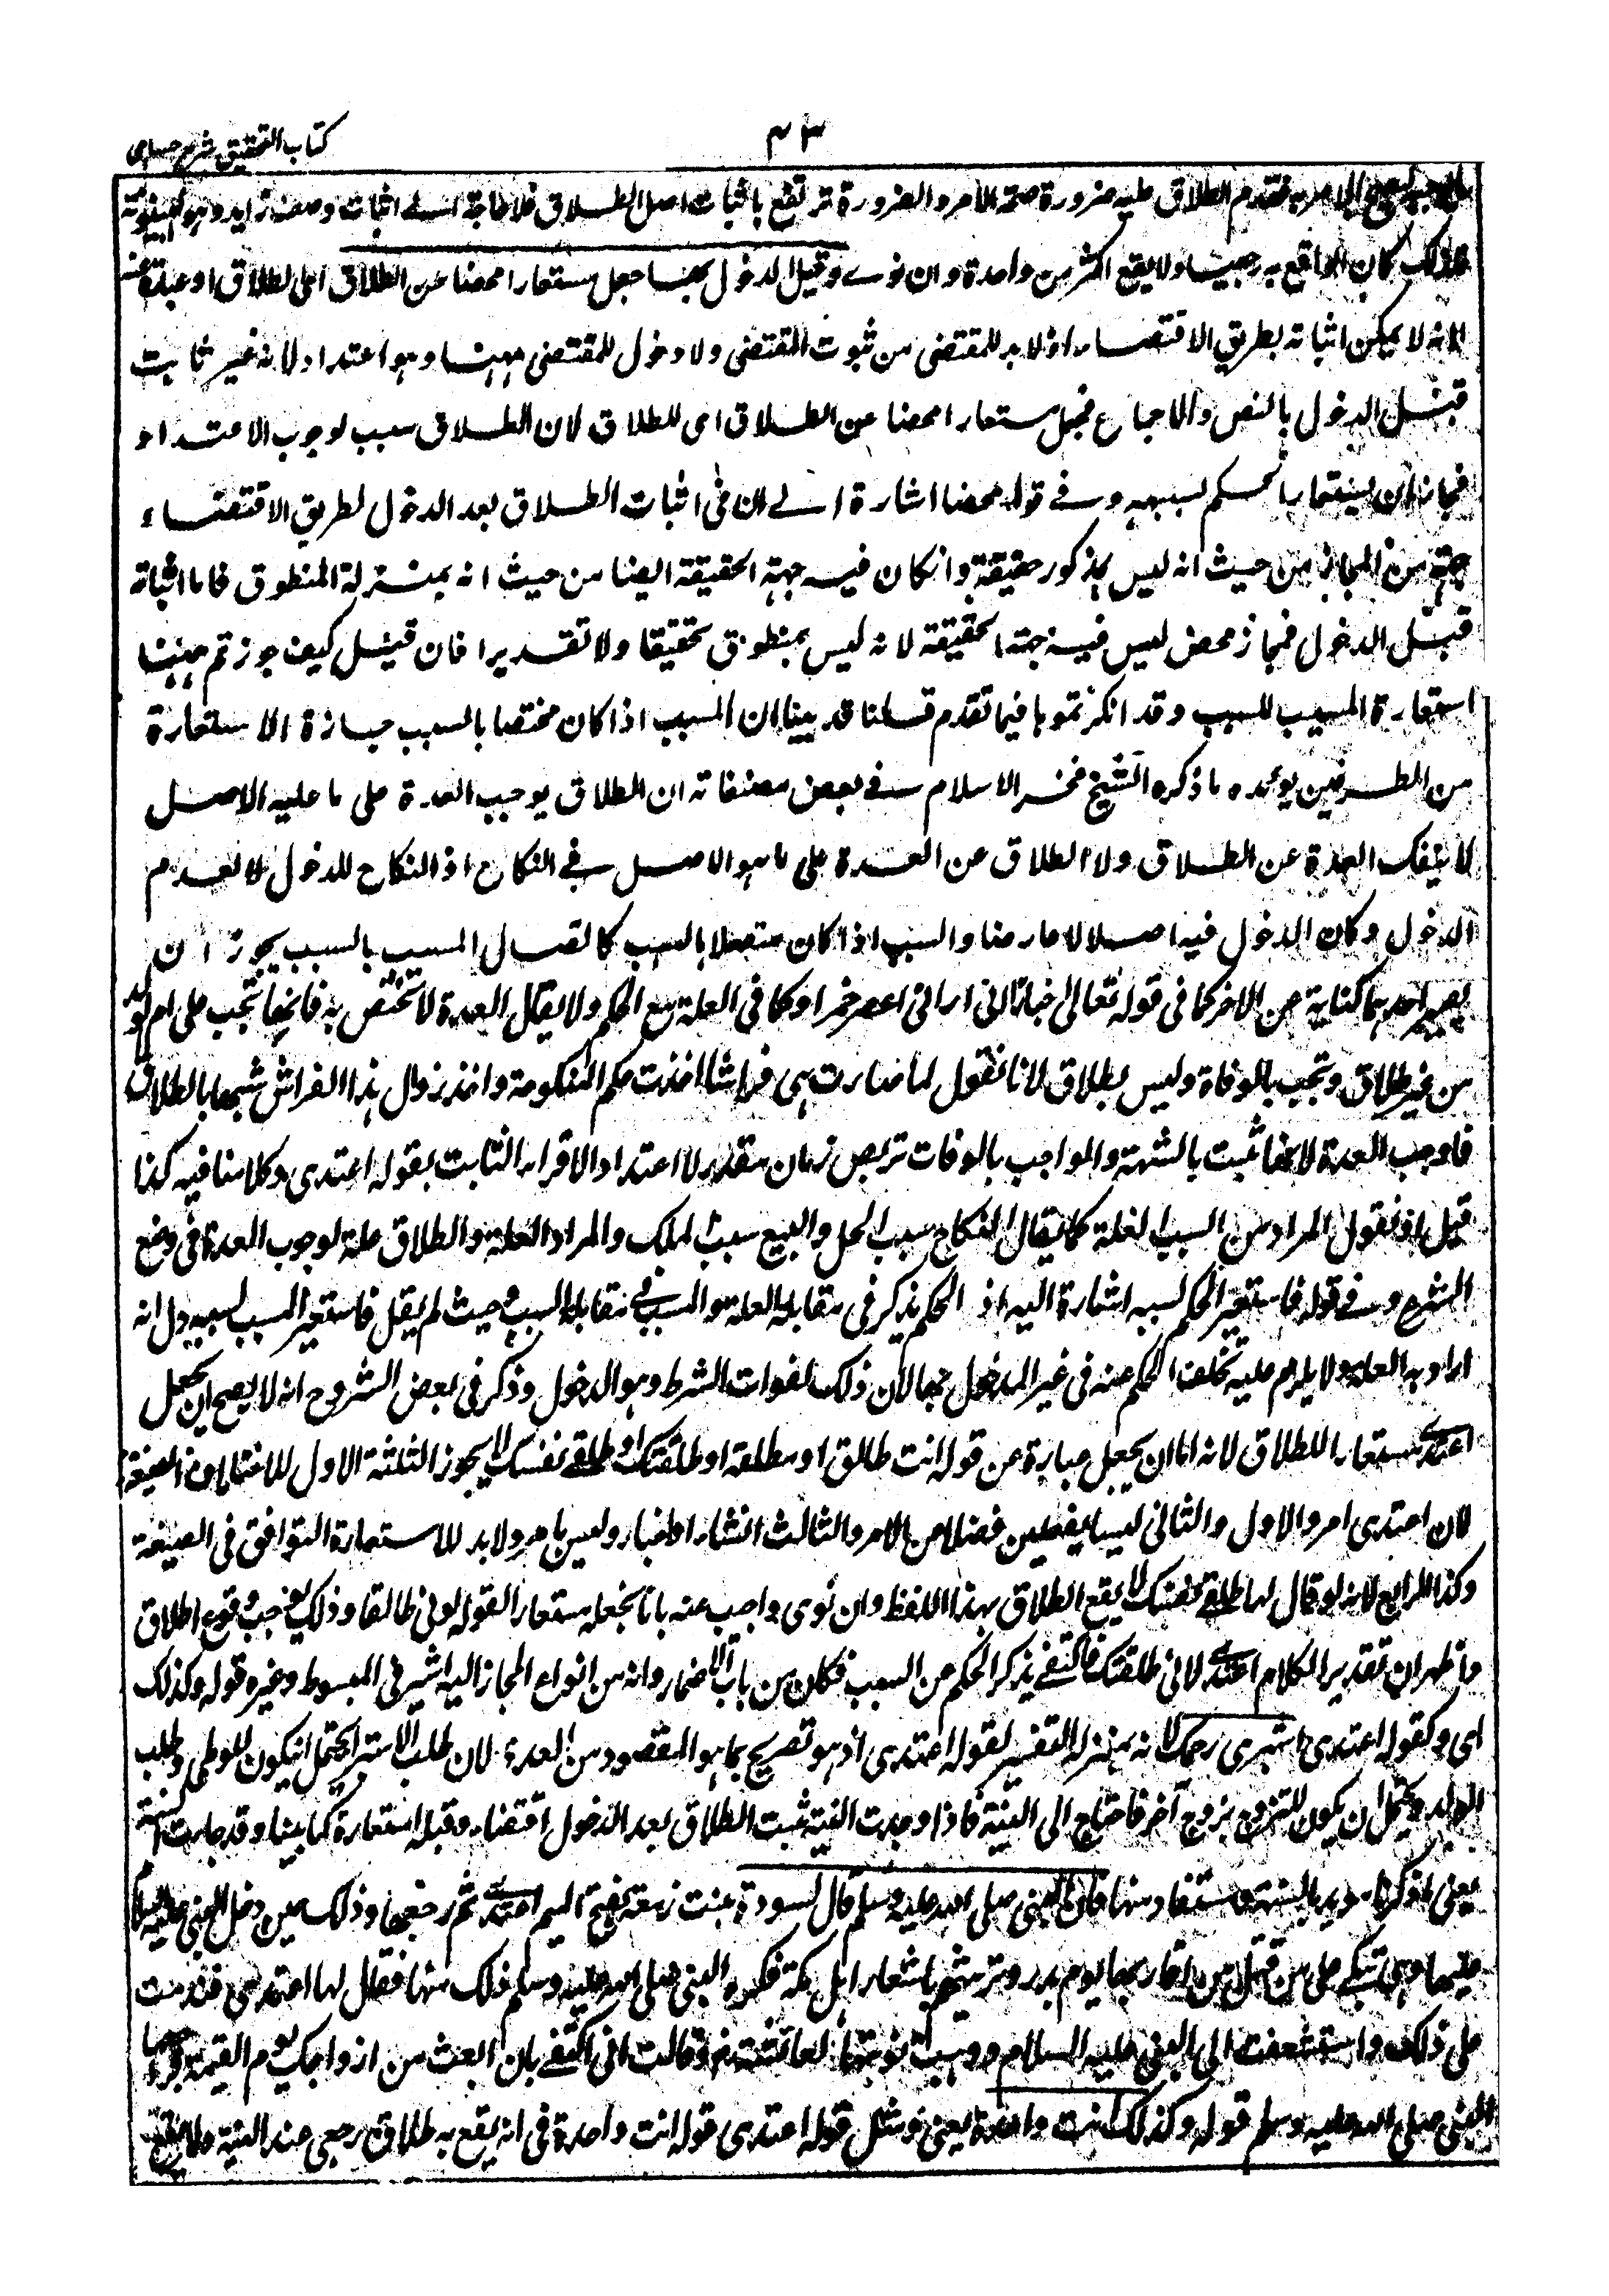 كتاب التحقيق شرح حسامى
٤٣
الامر به فقدم الطلاق عليه ضرورة صحة الامر والضرورة ترتفع باثبات اصل الطلاق فلا حاجة الى اثبات وصف زايد وهو البينونة
فلذلك كان الواقع به رجعيا ولا يقع اكثر من واحدة وان نوى وقبل الدخول بها جعل مستعارا محضا عن الطلاق اى لطلاق او عبارة عنه
لانه لا يمكن اثباته بطريق الاقتضاء اذ لا بد للمقتضى من ثبوت المقتضى ولا دخول للمقتضى ههنا وهو اعتداد لانه غير ثابت
قبل الدخول بالنص والاجماع فجعل مستعارا محضا عن الطلاق اى للطلاق لان الطلاق سبب لوجوب الاعتداد
فجاز ان يستعار الحكم لسببه وفى قوله محضا اشارة الى ان فى اثبات الطلاق بعد الدخول لطريق الاقتضاء
جهة من المجاز من حيث انه ليس بمذكور حقيقة وانكان فيه جهة الحقيقة ايضا من حيث انه بمنزلة المنطوق فاما اثباته
قبل الدخول فمجاز محض ليس فيه جهة الحقيقة لانه ليس بمنطوق تحقيقا ولا تقديرا فان قيل كيف جوزتم ههنا
استعارة المسبب للسبب وقد انكرتموها فيما تقدم قلنا قد بينا ان المسبب اذا كان مختصا بالسبب جازة الاستعارة
من الطرفين يؤيده ما ذكره الشيخ فخر الاسلام فى بعض مصنفاته ان الطلاق يوجب العدة على ما عليه الاصل
لا ينفك العدة عن الطلاق ولا الطلاق عن العدة على ما هو الاصل فى النكاح اذ النكاح للدخول لا لعدم
الدخول وكان الدخول فيه اصلا لا عارضا والسبب اذا كان متصلا بالسبب كاتصال المسبب بالسبب يجوز ان
يصير احدهما كناية عن الاخر كما فى قوله تعالى خبارا انى ارانى اعصر خمرا وكما فى العلة مع الحكم ولا يقال العدة لا تختص به فانها تجب على ام الولد
من غير طلاق وتجب بالوفاة وليس بطلاق لانا نقول لما صارت هى فراشا اخذت حكم المنكوحة واخذ زوال هذا الفراش شبها بالطلاق
فاوجب العدة لانها ثبت بالشبهة والواجب بالوفات تربص زمان مقدر لا اعتداد الاقراء الثابت بقوله اعتدى وكلامنا فيه كذا
قيل او نقول المراد من السبب العلة كما يقال النكاح سبب الحل والبيع سبب الملك والمراد العلة والطلاق علة لوجوب العدة فى وضع
الشرع وفى قوله فاستعير الحكم لسببه اشارة اليه اذ الحكم يذكر فى مقابلة العلة والمسبب فى مقابلة السبب وحيث لم يقل فاستعير المسبب لسببه دل انه
اراد به العلة ولا يلزم عليه تخلف الحكم عنه فى غير المدخول بها لان ذلك لفوات الشرط وهو الدخول وذكر فى بعض الشروح انه لا يصح ان يجعل
اعتدى مستعارا للطلاق لانه اما ان يجعل عبارة عن قوله انت طالق او مطلقة او طلقتك او طلقى نفسك لا يجوز الثلثة الاول للاختلاف فى الصيغة
لان اعتدى امر والاول والثانى ليسا بفعلين فضلا من الامر والثالث انشاء او اخبار وليس بامر ولا بد للاستعارة التوافق فى الصيغة
وكذا الرابع لانه لو قال لها طلقى نفسك لا يقع الطلاق بهذا اللفظ وان نوى واجيب عنه بانا نجعله مستعارا لقوله كونى طالقا وذلك يوجب وقوع الطلاق
واظهر ان تقدير الكلام اعتدى لانى طلقتك فاكتفى بذكر الحكم عن السبب فكان من باب الاضمار وانه من انواع المجاز اليه اشير فى المبسوط وغيره قوله وكذلك
اى وكقوله اعتدى استبرى رحمك لانه بمنزلة التفسير لقوله اعتدى اذ هو تصريح بما هو المقصود من العدة لان طلب الاستبراء يحتمل ان يكون للوطى وطلب
الولد ويحتمل ان يكون للتزوج بزوج آخر فاحتاج الى النية فاذا وجدت النية ثبت الطلاق بعد الدخول اقتضاء وقبله استعارة كما بينا وقد جاءت السنة
يعنى ما ذكرنا مؤيد بالسنة ومستفاد منها فان النبى صلى الله عليه وسلم قال لسودة بنت زمعة بفتح الميم اعتدى ثم راجعها وذلك حين دخل النبى عليه السلام
عليها وهى تبكى على من قتل من اقاربها يوم بدر وترثيهم باشعار اهل مكة فكره النبى صلى الله عليه وسلم ذلك منها فقال لها اعتدى فندمت
على ذلك واستشفعت الى النبى عليه السلام ووهبت نوبتها لعائشة وقالت انى اكتفى بان ابعث من ازواجك يوم القيمة فراجعها
النبى صلى الله عليه وسلم قوله وكذلك انت واحدة يعنى ومثل قوله اعتدى قوله انت واحدة فى انه يقع به طلاق رجعى عند النية